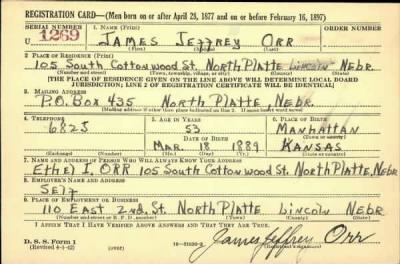 REGISTRATION CARD—(Men born on or after April 28, 1877 and on or before February 16, 1897)
SERIAL NUMBER 1. NAME (Print) ORDER NUMBER
U 1269 JAMES JEFFREY ORR
(First) (Middle) (Last)
2. PLACE OF RESIDENCE (Print)
105 South Cottonwood St. North Platte Lincoln Nebr.
(Number and street) (Town, township, village, or city) (County) (State)
[THE PLACE OF RESIDENCE GIVEN ON THE LINE ABOVE WILL DETERMINE LOCAL BOARD
JURISDICTION; LINE 2 OF REGISTRATION CERTIFICATE WILL BE IDENTICAL]
3. MAILING ADDRESS
P.O. Box 435 North Platte, Nebr.
[Mailing address if other than place indicated on line 2. If same insert word same]
4. TELEPHONE 5. AGE IN YEARS 6. PLACE OF BIRTH
682J 53 Manhattan
DATE OF BIRTH (Town or county)
Mar. 18 1889 Kansas
(Exchange) (Number) (Mo.) (Day) (Yr.) (State or country)
7. NAME AND ADDRESS OF PERSON WHO WILL ALWAYS KNOW YOUR ADDRESS
Ethel I. Orr 105 South Cottonwood St. North Platte, Nebr
8. EMPLOYER'S NAME AND ADDRESS
Self
9. PLACE OF EMPLOYMENT OR BUSINESS
110 East 2nd. St. North Platte Lincoln Nebr
(Number and street or R. F. D. number) (Town) (County) (State)
I AFFIRM THAT I HAVE VERIFIED ABOVE ANSWERS AND THAT THEY ARE TRUE.
D. S. S. Form 1
(Revised 4-1-42) (over)
James Jeffrey Orr